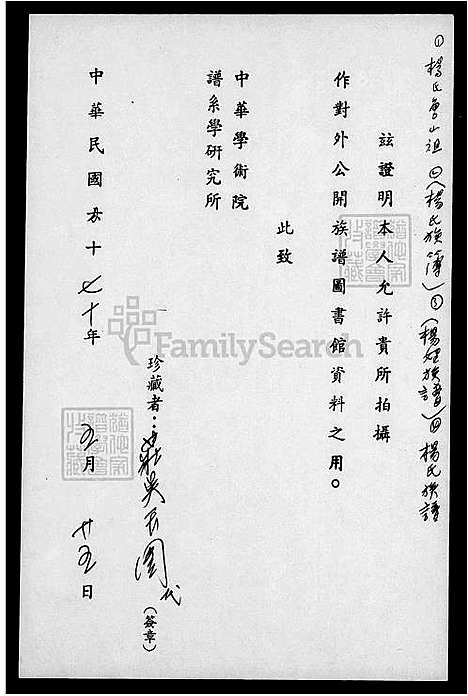 ①楊氏魯山祖㊁(楊氏族簿)㊂(楊姓族譜)㊃楊氏族譜
茲證明本人允許貴所拍攝
作對外公開族譜圖書館資料之用。
此致
中華學術院
譜系學研究所
珍藏者：莊吳 代(簽章)
中華民國 十七十年五月廿五日
FamilySearch